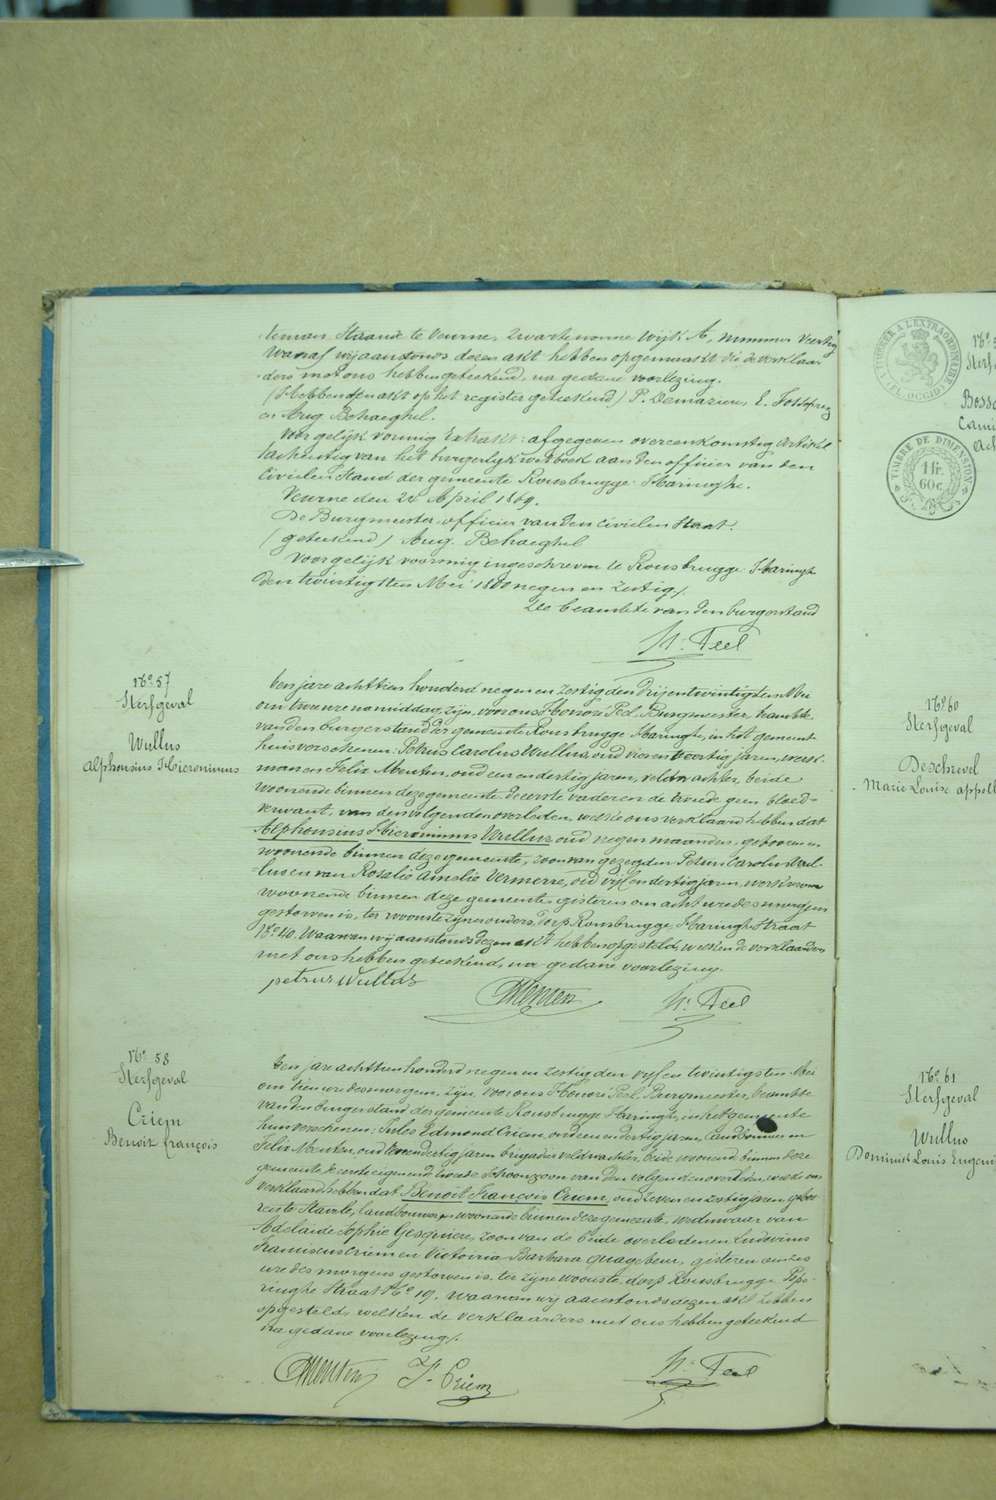 Straat te Veurne, Zwarte nonne Wijk A, nummer veertig
Waeraf wij aanstonds dezen akt hebben opgemaakt die de verklaar-
ders met ons hebben geteekend, na gedane voorlezing.
(Hebben den akt op het register geteekend) P. Demazieres, E.
en Aug Behaeghel.
Voor gelijk vormig Extrakt: afgegeven overeenkomstig Artikel
tachentig van het burgerlijk wetboek aan den officier van den
Civielen Stand der gemeente Rousbrugge-Haringhe.
Veurne den 20 April 1869.
De Burgmeester officier van den civielen Staat.
(geteekend) Aug. Behaeghel
Voor gelijk voormig ingeschreven te Rousbrugge-Haringhe
den twintigsten Mei 1800 negen en zestig /.
De beambte van den burgerstand
H. Peel
No. 57
Sterfgeval
Wullus
Alphonsius Hieronimus
Ten jare achttien honderd negen en zestig den drij en twintigsten Mei
om twee ure namiddag, zijn, voor ons Honoré Peel, Burgmeester, beambte
van den burgerstand der gemeente Rousbrugge-Haringhe, in het gemeente
huis verschenen: Petrus Carolus Wullus, oud vier en veertig jaren, werk-
man en Felix Menten, oud een en dertig jaren, veldwachter, beide
woonende binnen deze gemeente, de eerste vader en de tweede geen bloed-
verwant, van den volgenden overleden, welke ons verklaard hebben dat
Alphonsius Hieronimus Wullus, oud negen maanden, geboren en
woonende binnen deze gemeente, zoon van gezegden Petrus Carolus Wul-
lus en van Rosalie Amelie Vermersse, oud vijf en dertig jaren, werkvrouw
woonende binnen deze gemeente, gisteren om acht ure des morgens
gestorven is, ter woonste zijner ouders, dorp Rousbrugge Haringhe Straat
No. 40. Waervan wij aanstonds dezen akt hebben opgesteld, welken de verklaarders
met ons hebben geteekend, na gedane voorlezing.
petrus Wullus
FMenten
H. Peel
No. 58
Sterfgeval
Criem
Benoit françois
Ten jare achttien honderd negen en zestig den vijf en twintigsten Mei
om tien ure des morgens, zijn, voor ons Honoré Peel, Burgmeester, beambte
van den burgerstand der gemeente Rousbrugge-Haringhe, in het gemeente
huis verschenen: Jules Edmond Criem, oud een en dertig jaren, landbouwer en
Felix Menten, oud een en dertig jaren brigadier veldwachter, beide woonend binnen deze
gemeente de eerste eigen en de tweede Schoonzoon van den volgenden overleden, welke ons
verklaard hebben dat Benoit François Criem, oud zeven en zestig jaren, gebo-
ren te Stavele, landbouwer en woonende binnen deze gemeente, weduwaar van
Adelaide Sophie Gesquiere, zoon van de beide overledenen Ludovicus
Franciscus Criem en Victorina Barbara Quaghebeur, gisteren om zes
ure des morgens gestorven is, ter zijne woonste, dorp Rousbrugge Pope-
ringhe Straat No 19. Waarvan wij aanstonds dezen akt hebben
opgesteld, welken de verklaarders met ons hebben geteekend
na gedane voorlezing /.
FMenten
J. Criem
H. Peel
TIMBRE A L'EXTRAORDINAIRE
FL. OCCID.
TIMBRE DE DIMENSION
1 fr.
60 c.
Sterf
Bosse
Cami
No. 60
Sterfgeval
Deschrevel
Marie Louise appell
No. 61
Sterfgeval
Wullus
Dominiek Louis Eugeni